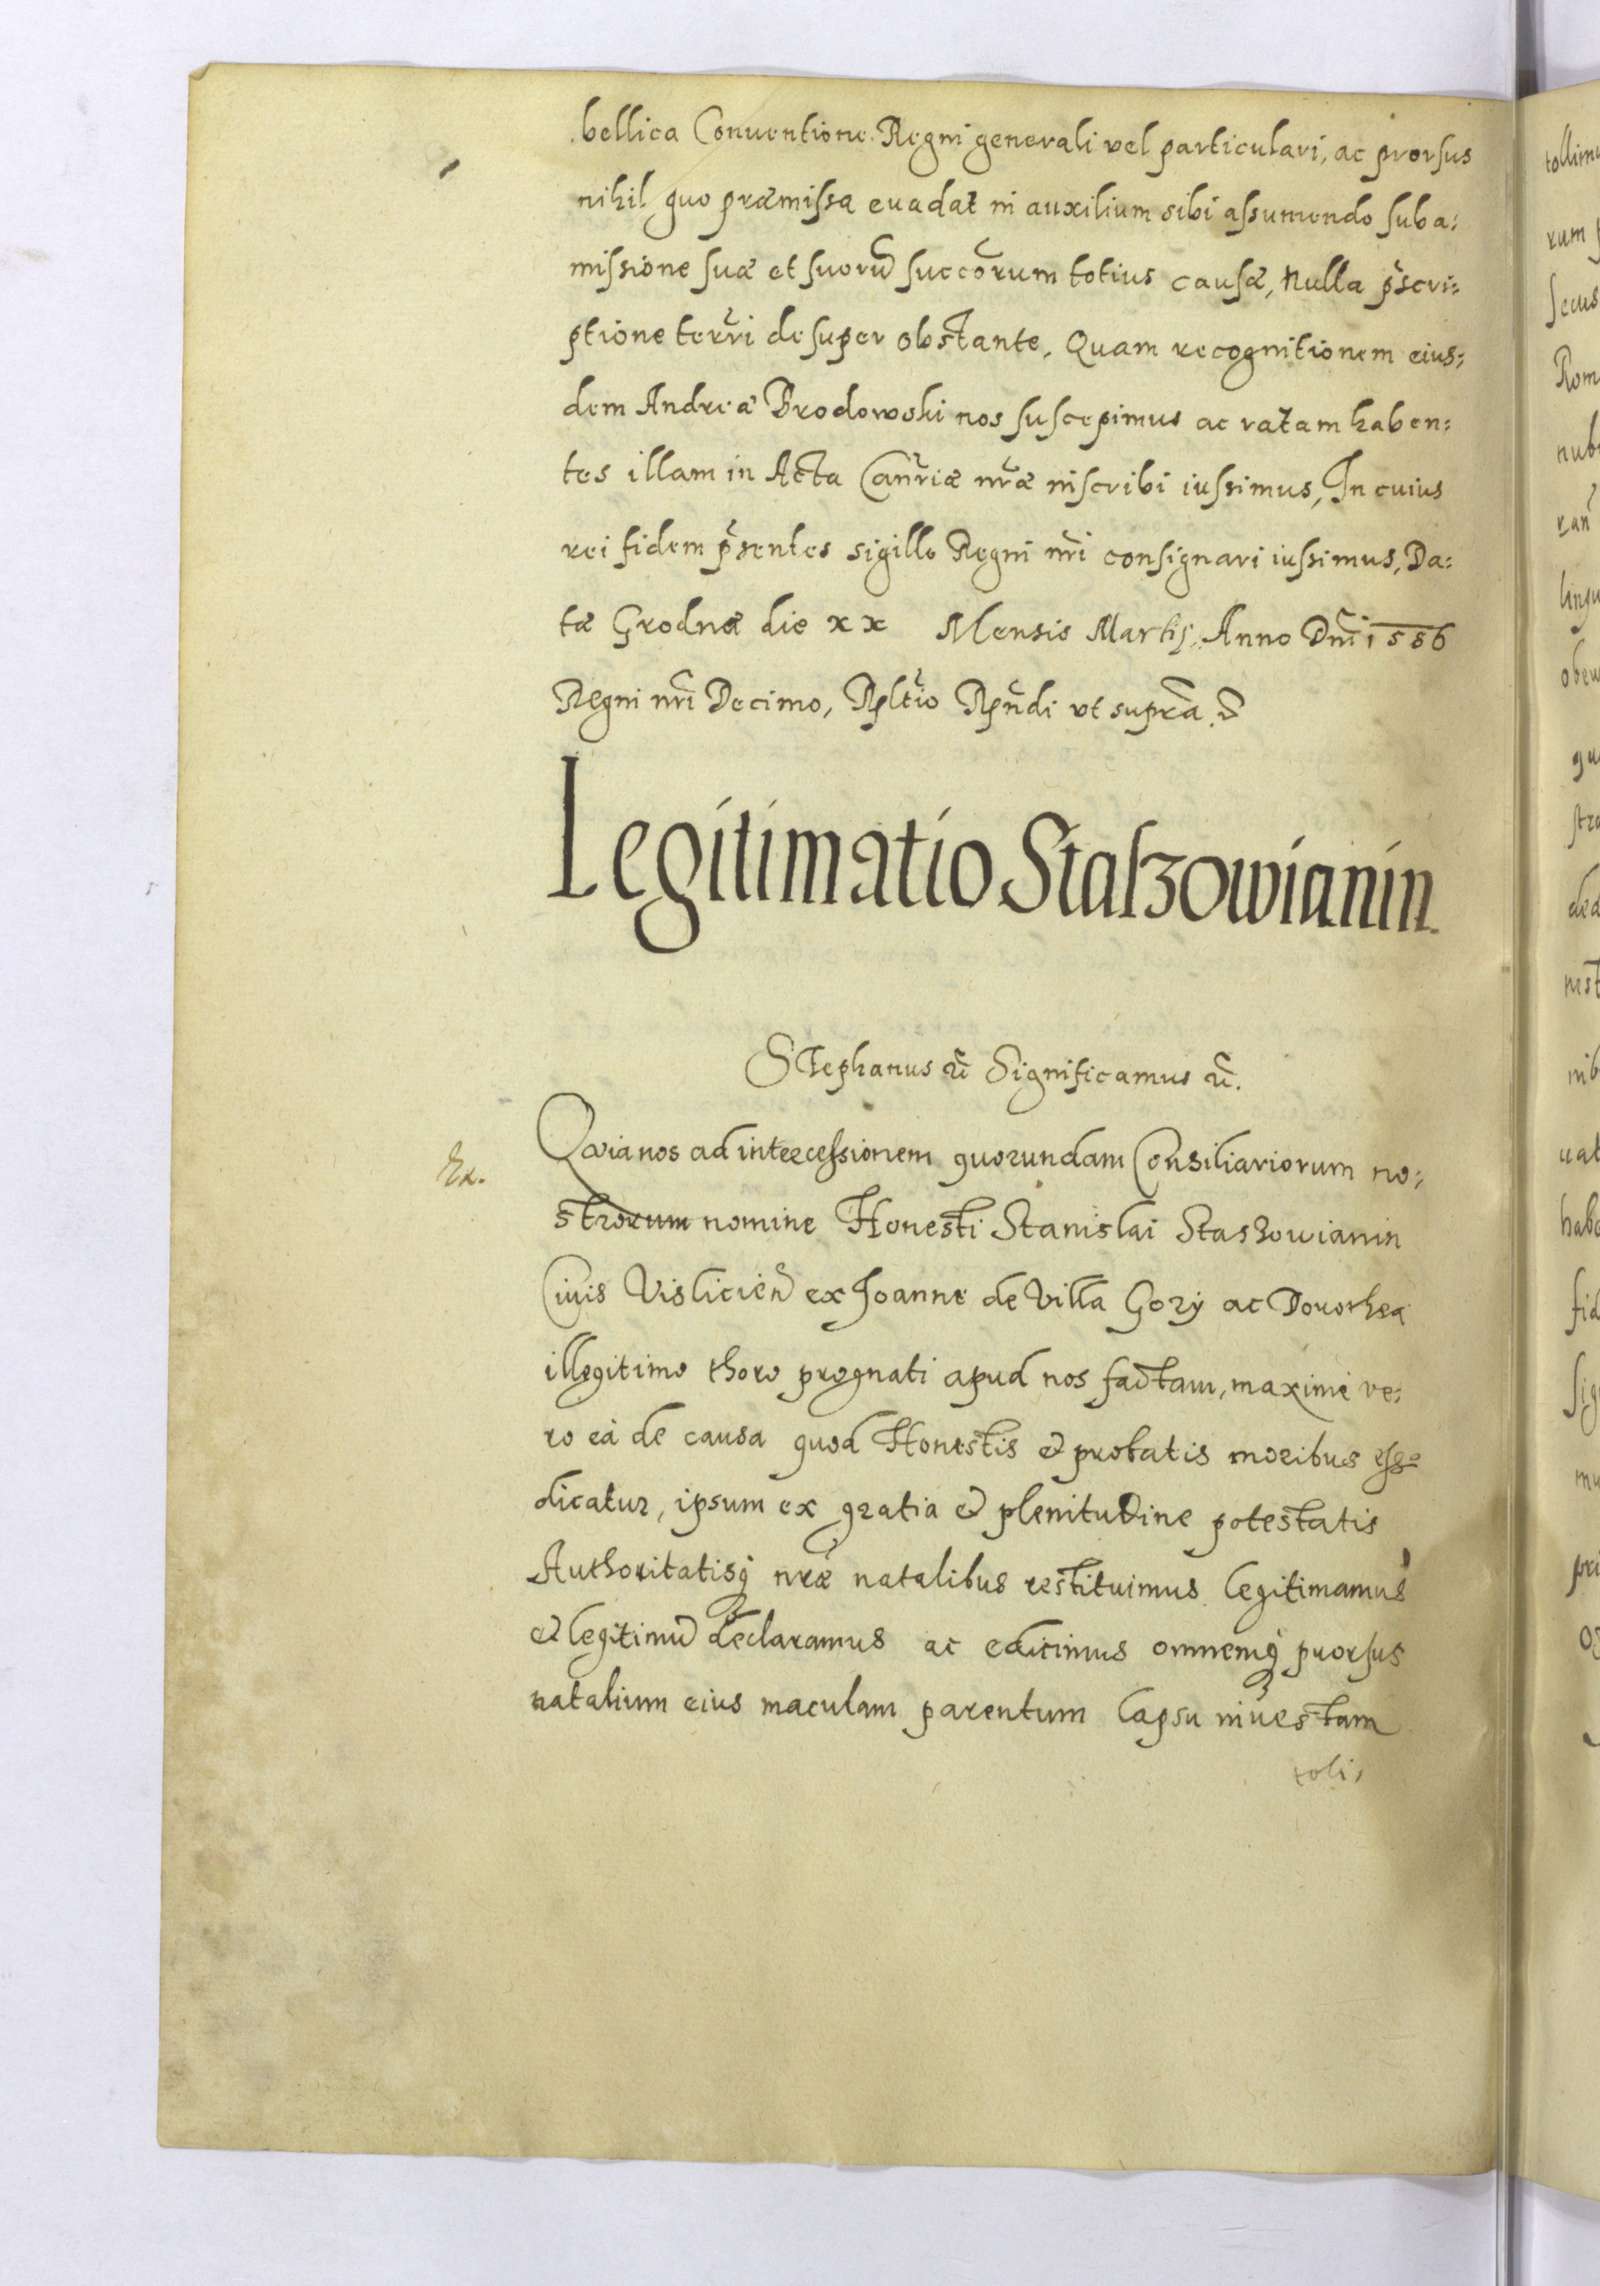 bellica Conuentione Regni generali vel particulari, ac prorsus
nihil quo præmissa euadat in auxilium sibi assumendo sub a:
missione suæ et suorũ succõrum totius causæ, Nulla p̃scri:
ptione terr̃i desuper obstante, Quam recognitionem eius:
dem Andreæ Brodowski nos suscepimus ac ratam haben:
tes illam in Acta Canr̃iæ nr̃æ inscribi iussimus, In cuius
rei fidem p̃sentes sigillo Regni nr̃i consignari iussimus, Da:
tæ Grodnæ die xx Mensis Martij, Anno Dnĩ 1586
Regni nr̃i Decimo, Rpltĩo Rpñdi vt supra
Legitimatio Staszowianin.
Stephanus &c̃ Significamus &c̃.
Quia nos ad intercessionem quorundam Consiliariorum no:
strorum nomine Honesti Stanislai Staszowianin
Ciuis Visliciẽn ex Joanne de Villa Gory ac Dorothea
illegitimo thoro prognati apud nos factam, maximè ve:
ro eà de causa quod Honestis et probatis moribus esse
dicatur, ipsum ex gratia et plenitudine potestatis
Authoritatisq nr̃æ natalibus restituimus legitimamus
et legitimũ declaramus ac edicimus omnemq prorsus
natalium eius maculam parentum lapsu inuestam
toli,
rum
secus
Rom